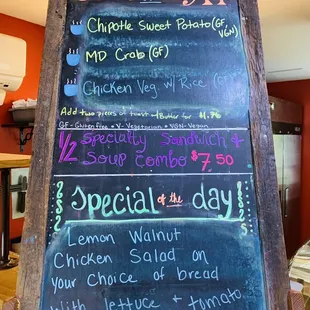 Chipotle Sweet Potato (GF, VGN)
MD Crab (GF)
Chicken Veg. w/ Rice (GF)
Add two pieces of toast + Butter for
GF - Gluten Free • V - Vegetarian • VGN - Vegan
1/2 Specialty Sandwich +
Soup Combo $7.50
Special of the day
Lemon Walnut
Chicken Salad on
your choice of bread
with lettuce + tomato